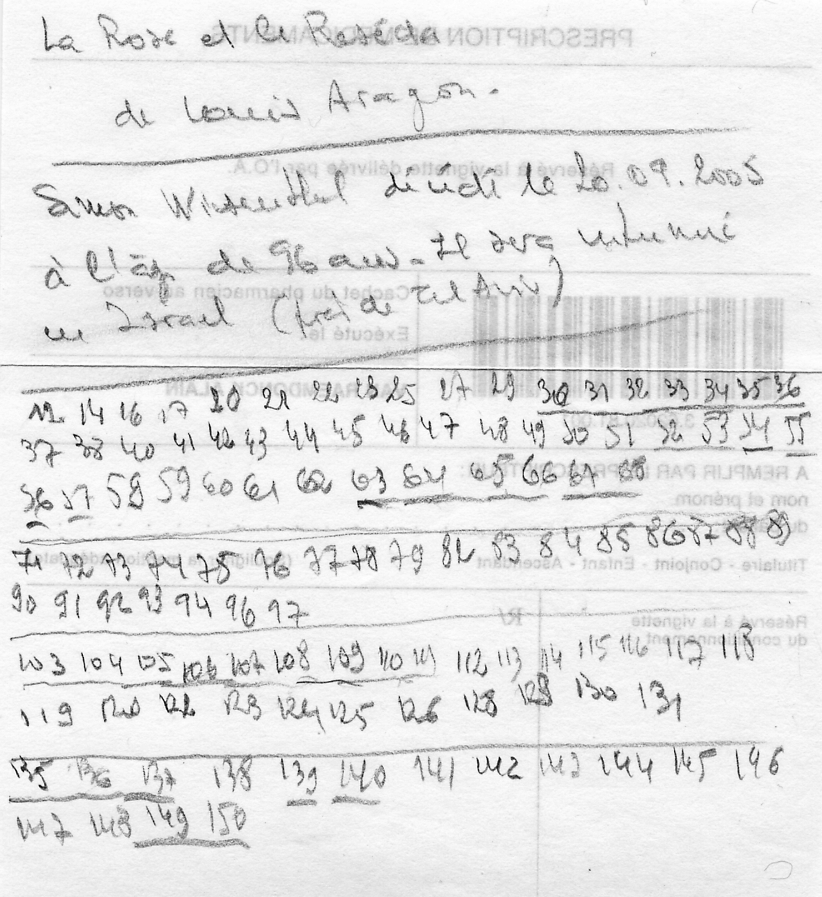 La Rose et le Réséda
de Louis Aragon.
Simon Wiesenthal décédé le 20.09.2005
à l'âge de 96 ans. Il sera inhumé
en Israel (près de Tel Aviv)
12 14 16 17 20 21 22 23 25 27 29 30 31 32 33 34 35 36
37 38 40 41 42 43 44 45 46 47 48 49 50 51 52 53 54 55
56 57 58 59 60 61 62 63 64 65 66 67 68
71 72 73 74 75 76 77 78 79 82 83 84 85 86 87 88 89
90 91 92 93 94 96 97
103 104 105 106 107 108 109 110 111 112 113 114 115 116 117 118
119 120 122 123 124 125 126 128 129 130 131
135 136 137 138 139 140 141 142 143 144 145 146
147 148 149 150
PRESCRIPTION DE MEDICAMENTS
Réservé à la vignette délivrée par l'O.A.
Cachet du pharmacien au verso
Exécuté le
A REMPLIR PAR LE PRESCRIPTEUR:
nom et prénom
Titulaire - Conjoint - Enfant - Ascendant
Réservé à la vignette
du conditionnement
R/